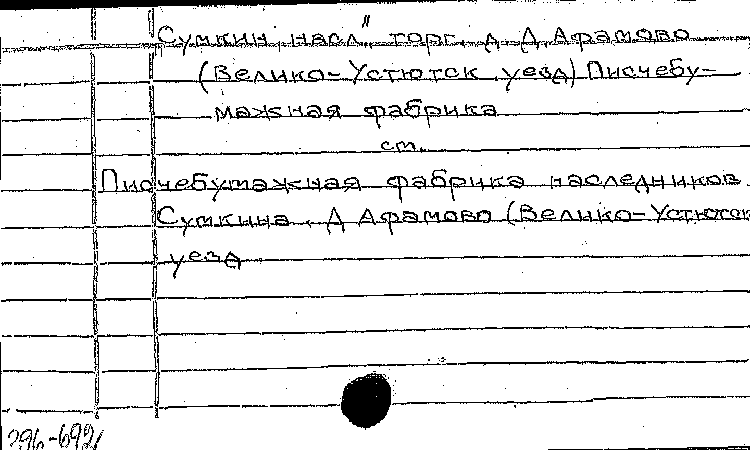 "Сумкин насл" торг. д. Д. Афамово
(Велико-Устютск. уезд) Писчебу-
мажная фабрика
см.
Писчебумажная фабрика наследников
Сумкина. Д Афамово (Велико-Устютск
уезд
296-692/